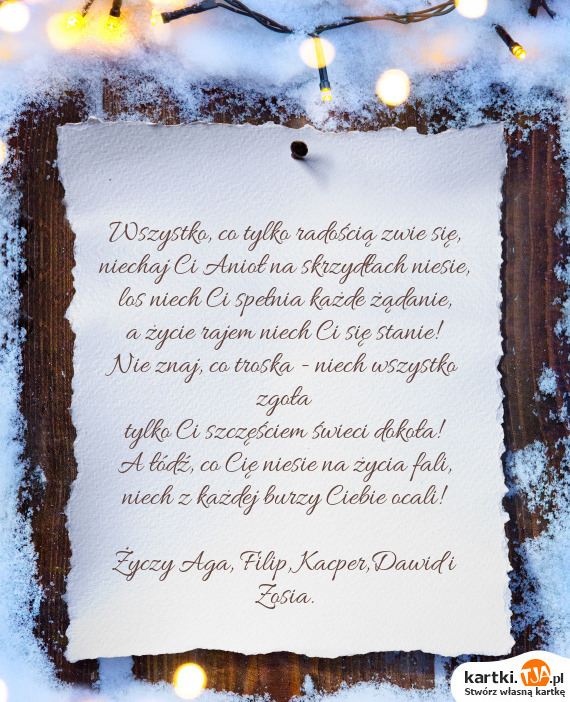 Wszystko, co tylko radością zwie się,
niechaj Ci Anioł na skrzydłach niesie,
los niech Ci spełnia każde żądanie,
a życie rajem niech Ci się stanie!
Nie znaj, co troska - niech wszystko
zgoła
tylko Ci szczęściem świeci dokoła!
A łódź, co Cię niesie na życia fali,
niech z każdej burzy Ciebie ocali!
Życzy Aga, Filip,Kacper,Dawid i
Zosia.
kartki.TJA.pl
Stwórz własną kartkę